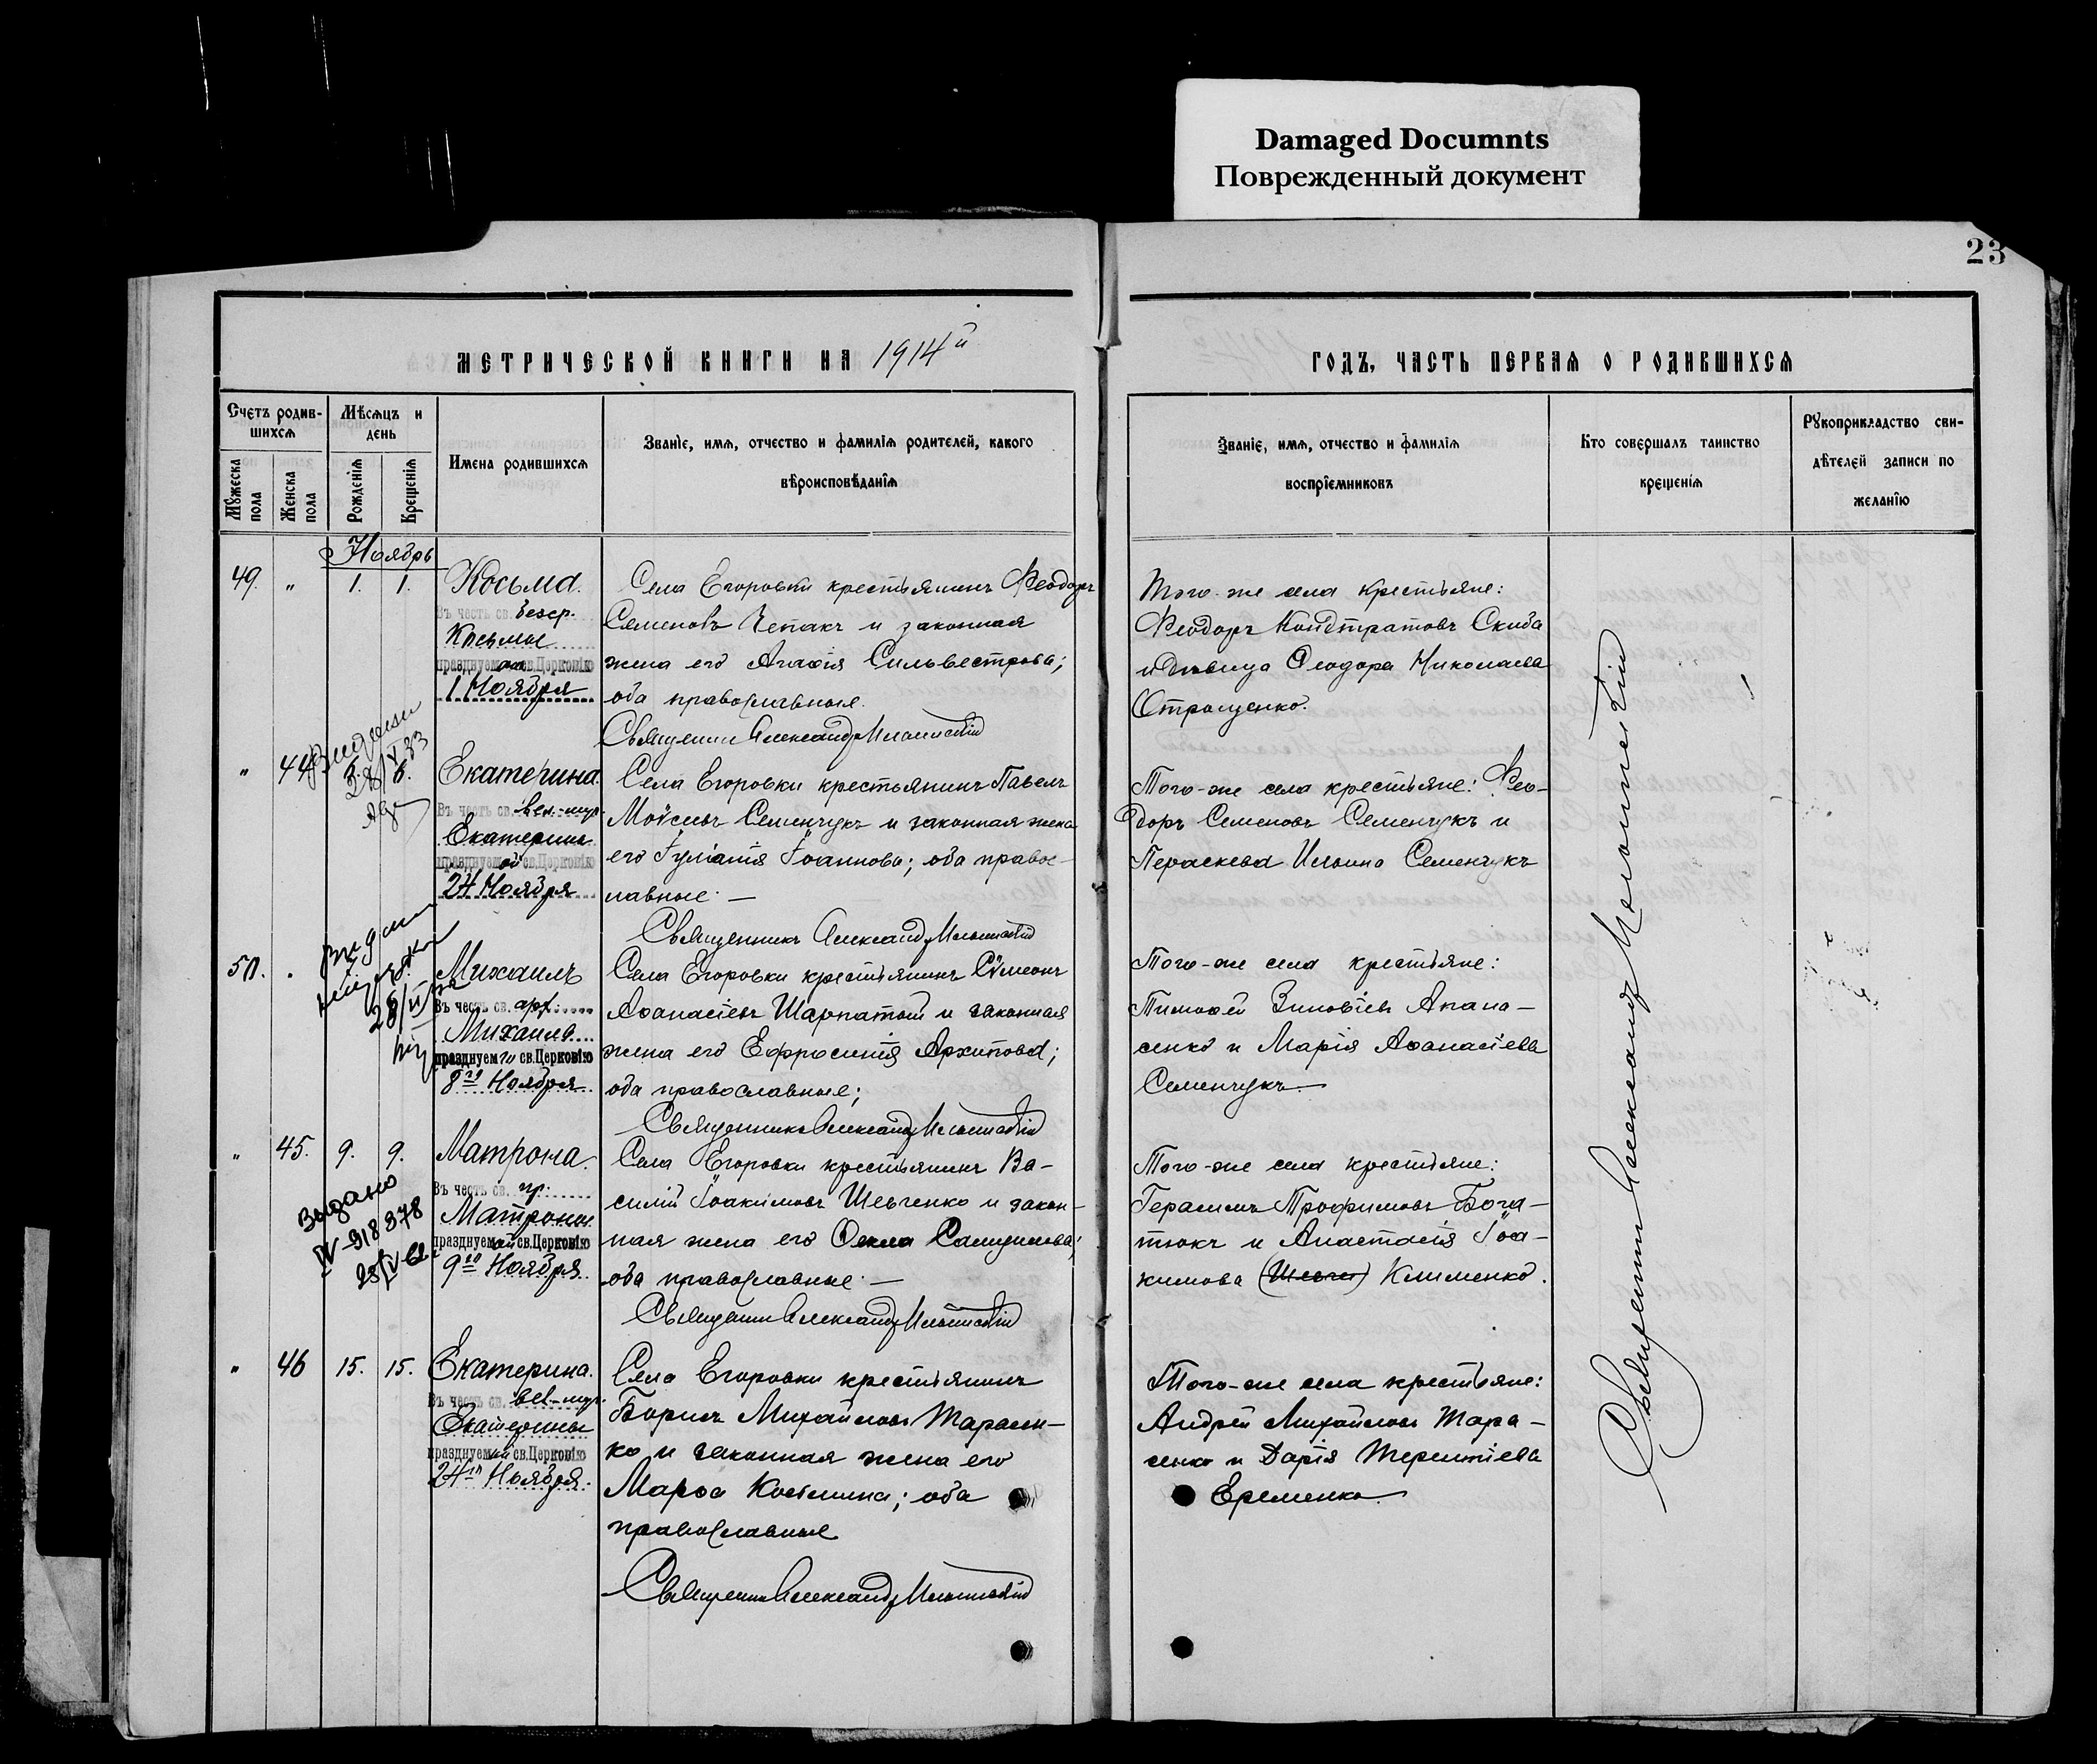 Damaged Documnts
Поврежденный документ
23
МЕТРИЧЕСКОЙ КНИГИ НА 1914й
ГОДЪ, ЧАСТЬ ПЕРВАЯ О РОДИВШИХСЯ
Счетъ родив-
шихся
Мѣсяцъ и
день
Мужеска
пола
Женска
пола
Рожденія
Крещенія
Имена родившихся
Званіе, имя, отчество и фамилія родителей, какого
вѣроисповѣданія
Званіе, имя, отчество и фамилія
воспріемниковъ
Кто совершалъ таинство
крещенія
Рукоприкладство сви-
дѣтелей записи по
желанію
Ноябрь
49. " 1. 1. Косьма.
Въ честь св. безср.
Косьмы
празднуем св. Церковію
1 Ноября
Села Егоровки крестьянинъ Феодоръ
Семеновъ Чепакъ и законная
жена его Агафія Сильвестрова;
оба православные.
Священникъ Александр
Того-же села крестьяне:
Феодоръ Кондтратовъ Скиба
и дѣвица Феодора Николаева
Отрощенко.
" 44 5. 6. Екатерина.
Въ честь св. вел.-муч.
Екатерины
празднуемой св. Церковію
24 Ноября
Села Егоровки крестьянинъ Павелъ
Моѵсеевъ Семенчукъ и законная жена
его Іуліанія Іоаннова; оба правос-
лавные. —
Священникъ Александр
Того-же села крестьяне: Фео-
доръ Семеновъ Семенчукъ и
Параскева Ильина Семенчукъ
50. " Михаилъ
Въ честь св. арх.
Михаила
празднуемго св. Церковію
8го Ноября
Села Егоровки крестьянинъ Сѵмеонъ
Аѳанасіевъ Шарпатый и законная
жена его Ефросинія Архипова;
оба православные;
Священникъ Александр
Того-же села крестьяне:
Тимоѳей Зиновіевъ Апана-
сенко и Марія Аѳанасіева
Семенчукъ. —
" 45. 9. 9. Матрона.
Въ честь св. пр.
Матроны
празднуемой св. Церковію
9го Ноября
Выдано
IV-918378
Села Егоровки крестьянинъ Ва-
силій Іоакимовъ Шевченко и закон-
ная жена его Ѳекла
оба православные. —
Священникъ Александр
Того-же села крестьяне:
Герасимъ Трофимовъ Бога-
тюкъ и Анастасія Іоа-
кимова (Шевчен) Клименко.
" 46 15. 15. Екатерина.
Въ честь св. вел-муч.
Екатерины
празднуемой св. Церковію
24го Ноября.
Села Егоровки крестьянинъ
Борисъ Михайловъ Тарасен-
ко и законная жена его
Марѳа Косьмина; оба
православные
Священникъ Александр
Того-же села крестьяне:
Андрей Михайловъ Тара-
сенко и Дарія Терентіева
Еременко.
Священникъ Александр